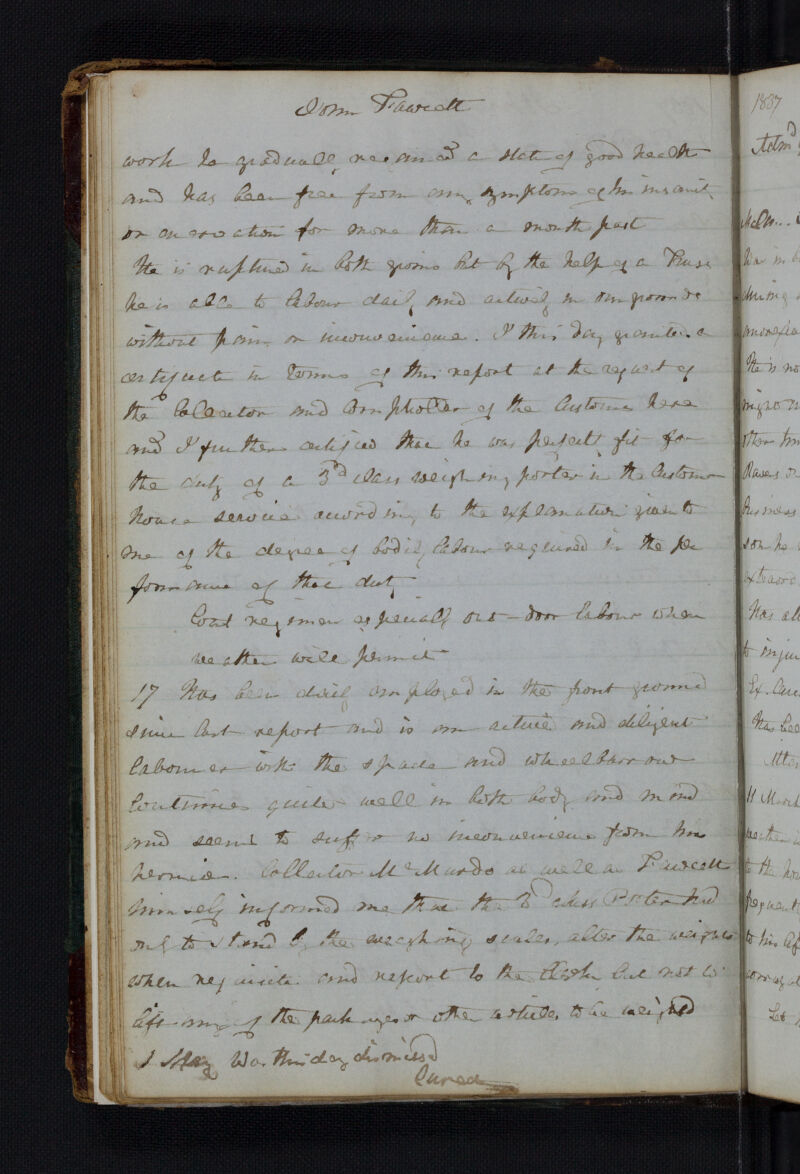 John Fawcett
work he gradually regained a state of good health
and has been free from any symptoms of his insanity
or for more than a month past
He is ruptured in both groins but by the help of a Truss
he is able to labour daily and actively in our grounds
without pain or inconvenience. I this day granted a
certificate in terms of this report at the request of
the Collector and Comptroller of the Customs here
and I further certified that he was perfectly fit for
the duty of a 3d class weighing porter in the Custom
house service according to the explanation given to
me of the degree of bodily labour required in the per
formance of that duty
Cont regimen especially out-door labour when
weather will permit
17 Has been daily employed in the front ground
since last report and is an active and diligent
labourer with the spade and wheelbarrow
Continues quite well in both body and mind
and seems to suffer no inconvenience from his
hernia. Collector McMurdo as well as Fawcett
himself informed me that the 3d class Porter had
only to stand by the weighing scales, alter the weights
when requisite and report to the Clerk but not to
lift any of the packages or other articles to be weighed
1 May Was this day dismissed
Cured
1837
Admd
He is no
Has al
to inju
Has bee
11 March
frequent